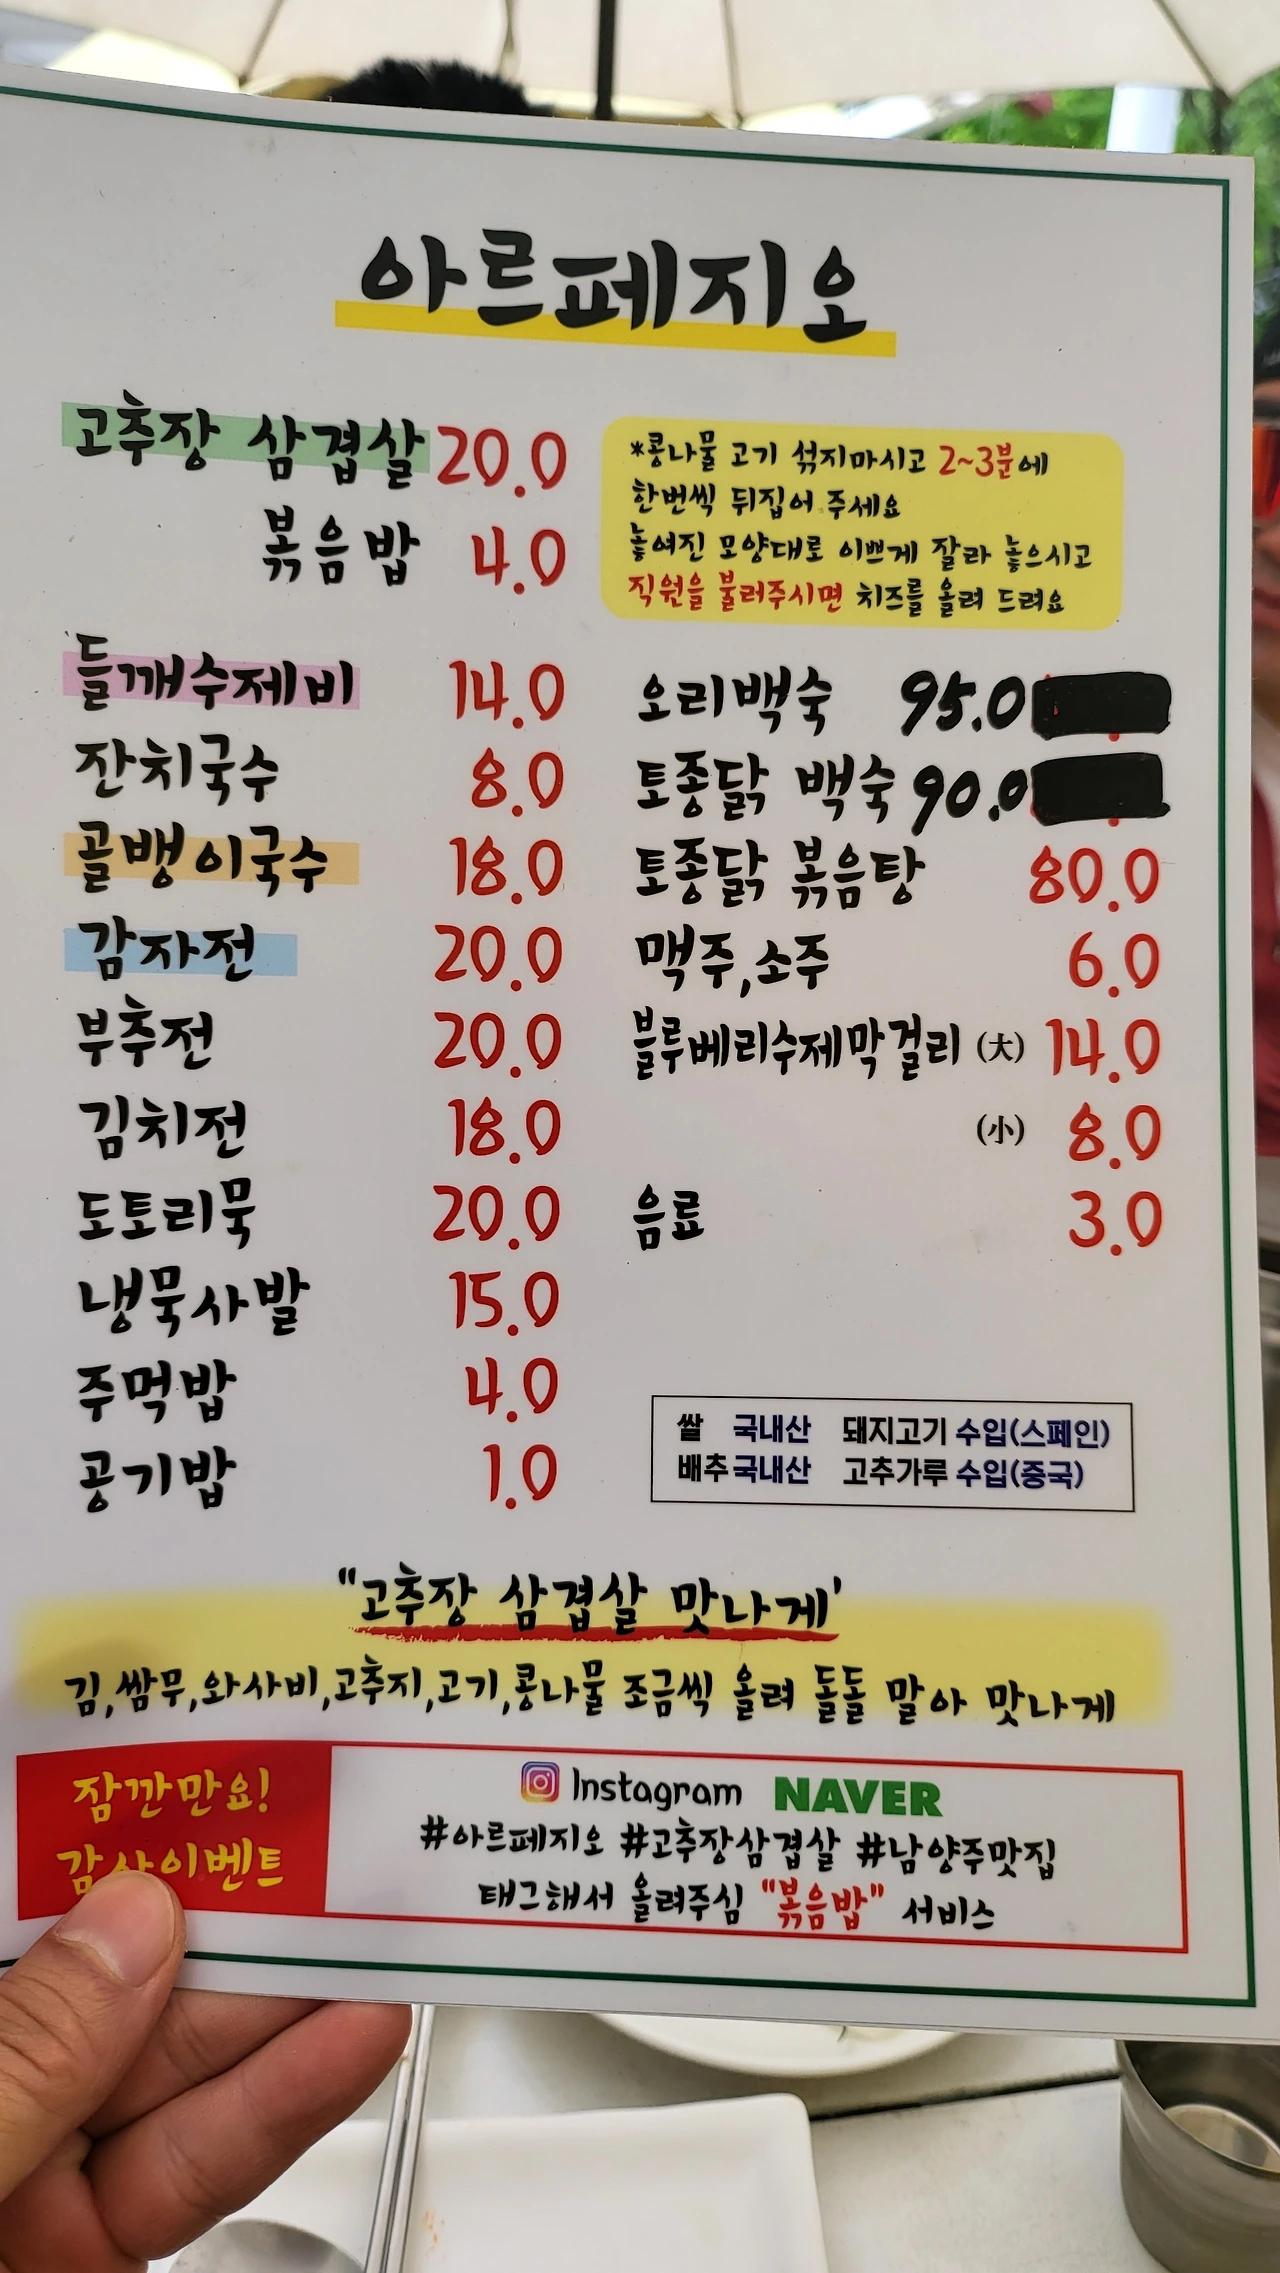 아르페지오
고추장 삼겹살 20.0
볶음밥 4.0
*콩나물 고기 섞지마시고 2~3분에
한번씩 뒤집어 주세요
놓여진 모양대로 이쁘게 잘라 놓으시고
직원을 불러주시면 치즈를 올려 드려요
들깨수제비 14.0
잔치국수 8.0
골뱅이국수 18.0
감자전 20.0
부추전 20.0
김치전 18.0
도토리묵 20.0
냉묵사발 15.0
주먹밥 4.0
공기밥 1.0
오리백숙 95.0
토종닭 백숙 90.0
토종닭 볶음탕 80.0
맥주,소주 6.0
블루베리수제막걸리 (大) 14.0
(小) 8.0
음료 3.0
쌀 국내산 돼지고기 수입(스페인)
배추 국내산 고추가루 수입(중국)
"고추장 삼겹살 맛나게'
김,쌈무,와사비,고추지,고기,콩나물 조금씩 올려 돌돌 말아 맛나게
잠깐만요!
감사이벤트
Instagram NAVER
#아르페지오 #고추장삼겹살 #남양주맛집
태그해서 올려주심 "볶음밥" 서비스